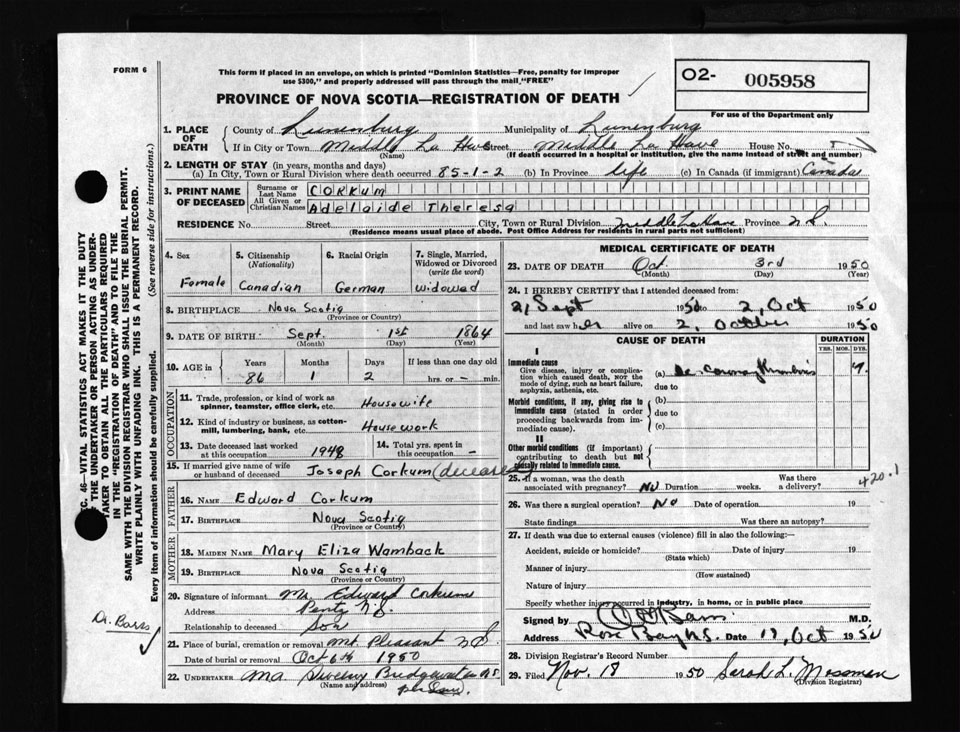 FORM 6
This form if placed in an envelope, on which is printed "Dominion Statistics—Free, penalty for improper
use $300," and properly addressed will pass through the mail "FREE"
O2- 005958
PROVINCE OF NOVA SCOTIA—REGISTRATION OF DEATH
For use of the Department only
1. PLACE OF DEATH
County of Lunenburg Municipality of Lunenburg
If in City or Town Middle La Have Street Middle La Have House No.
(Name) (If death occurred in a hospital or institution, give the name instead of street and number)
2. LENGTH OF STAY (in years, months and days)
(a) In City, Town or Rural Division where death occurred 85-1-2 (b) In Province life (c) In Canada (if immigrant) Canada
3. PRINT NAME OF DECEASED
Surname or Last Name CORKUM
All Given or Christian Names Adelaide Theresa
RESIDENCE No. Street City, Town or Rural Division Middle La Have Province N.S.
(Residence means usual place of abode. Post Office Address for residents in rural parts not sufficient)
4. Sex 5. Citizenship (Nationality) 6. Racial Origin 7. Single, Married, Widowed or Divorced (write the word)
Female Canadian German Widowed
8. BIRTHPLACE Nova Scotia
(Province or Country)
9. DATE OF BIRTH Sept. 1st 1864
(Month) (Day) (Year)
10. AGE in Years Months Days If less than one day old
86 1 2 hrs. or — min.
OCCUPATION
11. Trade, profession, or kind of work as spinner, teamster, office clerk, etc. Housewife
12. Kind of industry or business, as cotton-mill, lumbering, bank, etc. Housework
13. Date deceased last worked at this occupation 1948 14. Total yrs. spent in this occupation —
15. If married give name of wife or husband of deceased Joseph Corkum (deceased)
FATHER
16. NAME Edward Corkum
17. BIRTHPLACE Nova Scotia
(Province or Country)
MOTHER
18. MAIDEN NAME Mary Eliza Wamback
19. BIRTHPLACE Nova Scotia
(Province or Country)
20. Signature of informant Mr. Edward Corkum
Address Pentz N.S.
Relationship to deceased Son
21. Place of burial, cremation or removal Mt. Pleasant N.S.
Date of burial or removal Oct 6th 1950
22. UNDERTAKER Sweeny Bridgewater N.S.
(Name and address)
MEDICAL CERTIFICATE OF DEATH
23. DATE OF DEATH Oct. 3rd 1950
(Month) (Day) (Year)
24. I HEREBY CERTIFY that I attended deceased from:
21 Sept 1950 to 2, Oct 1950
and last saw her alive on 2. October 1950
CAUSE OF DEATH DURATION
YRS. MOS. DYS.
I
Immediate cause
Give disease, injury or complication which caused death, not the mode of dying, such as heart failure, asphyxia, asthenia, etc.
(a) Coronary Thrombosis
due to
Morbid conditions, if any, giving rise to immediate cause (stated in order proceeding backwards from immediate cause).
(b)
due to
(c)
II
Other morbid conditions (if important) contributing to death but not causally related to immediate cause.
420.1
25. If a woman, was the death associated with pregnancy? No Duration weeks. Was there a delivery?
26. Was there a surgical operation? No Date of operation 19
State findings Was there an autopsy?
27. If death was due to external causes (violence) fill in also the following:—
Accident, suicide or homicide? Date of injury 19
(State which)
Manner of injury
(How sustained)
Nature of injury
Specify whether injury occurred in industry, in home, or in public place
Signed by M.D.
Address Rose Bay N.S. Date Oct 1950
28. Division Registrar's Record Number
29. Filed Nov. 18 1950 Sarah L. Mossman
(Division Registrar)
SEC. 46—VITAL STATISTICS ACT MAKES IT THE DUTY
OF THE UNDERTAKER OR PERSON ACTING AS UNDER-
TAKER TO OBTAIN ALL THE PARTICULARS REQUIRED
IN THE "REGISTRATION OF DEATH" AND TO FILE THE
SAME WITH THE DIVISION REGISTRAR WHO SHALL ISSUE THE BURIAL PERMIT.
WRITE PLAINLY WITH UNFADING INK. THIS IS A PERMANENT RECORD.
Every item of information should be carefully supplied. (See reverse side for instructions.)
Dr. Barss